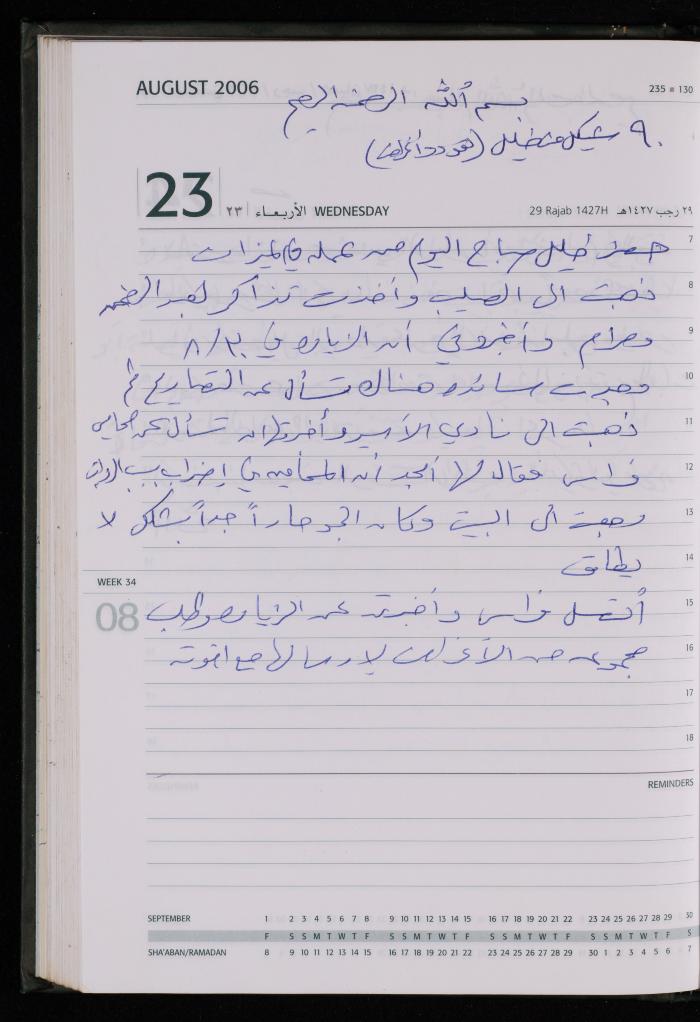 AUGUST 2006
235 ■ 130
بسم الله الرحمن الرحيم
٩٠ شيكل من خليل (هو ودا أغراض)
23
٢٣ الأربعاء WEDNESDAY
29 Rajab 1427H ٢٩ رجب ١٤٢٧هـ
7
حضر خليل صباح اليوم من عمله في
8
ذهبت الى الصليب وأخذت تذاكر لعبد
9
ومرام وأخبروني أن الزيارة في ٨/٣٠
10
وجدت سائده هناك تسأل عن التصاريح
11
ذهبت الى نادي الأسير وأخبرتها ان تسأل عن محامي
12
فراس فقال لها أمجد أن المحامين في إضراب بسبب الرواتب
13
رجعت الى البيت وكان الجو حاراً جداً بشكل لا
14
يطاق
WEEK 34
08
15
أتصل فراس وأخبرته عن الزيارة وطلب
16
مجموعه من الأغراض لإرسالها مع اخوته
17
18
REMINDERS
SEPTEMBER 1 2 3 4 5 6 7 8 9 10 11 12 13 14 15 16 17 18 19 20 21 22 23 24 25 26 27 28 29 30
F S S M T W T F S S M T W T F S S M T W T F S S M T W T F S
SHA'ABAN/RAMADAN 8 9 10 11 12 13 14 15 16 17 18 19 20 21 22 23 24 25 26 27 28 29 30 1 2 3 4 5 6 7